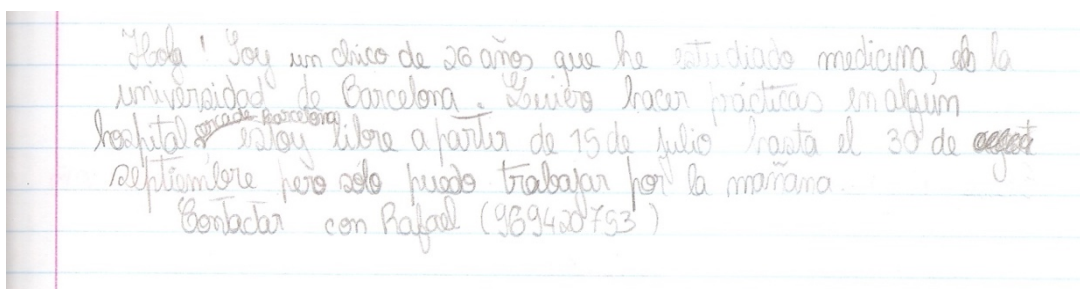 Hola! Soy un chico de 26 años que he estudiado medicina, en la
universidad de Barcelona. Quiero hacer prácticas en algún
hospital cerca de Barcelona, estoy libre a partir de 15 de julio hasta el 30 de
septiembre pero solo puedo trabajar por la mañana.
Contactar con Rafael (969420793)